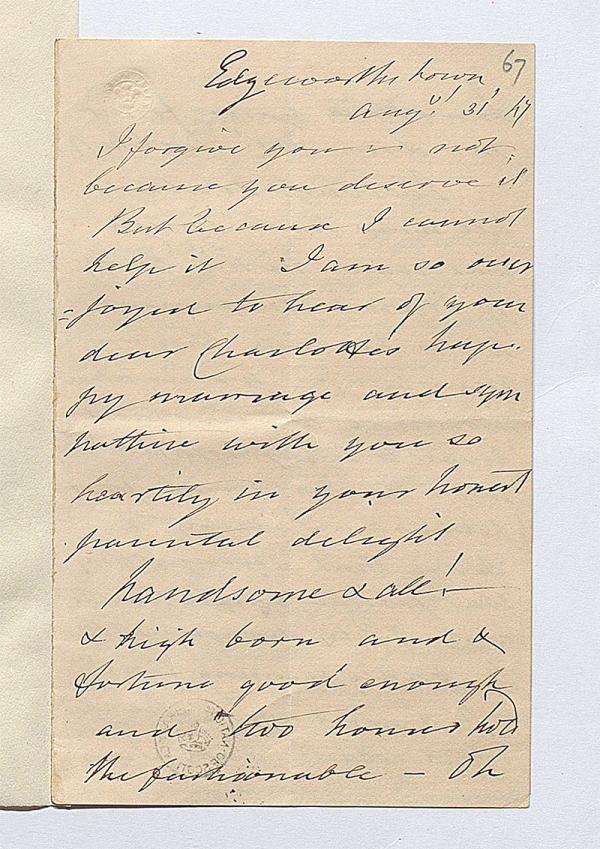 67
Edgeworths town
Augt 31st 47
I forgive you – not
because you deserve it
But because I cannot
help it I am so over
=joyed to hear of your
dear Charlotte's hap-
py marriage and sym
pathise with you so
heartily in your honest
parental delight
handsome & all! –
& high born and &
fortune good enough
and two homes
the fashionable – Oh